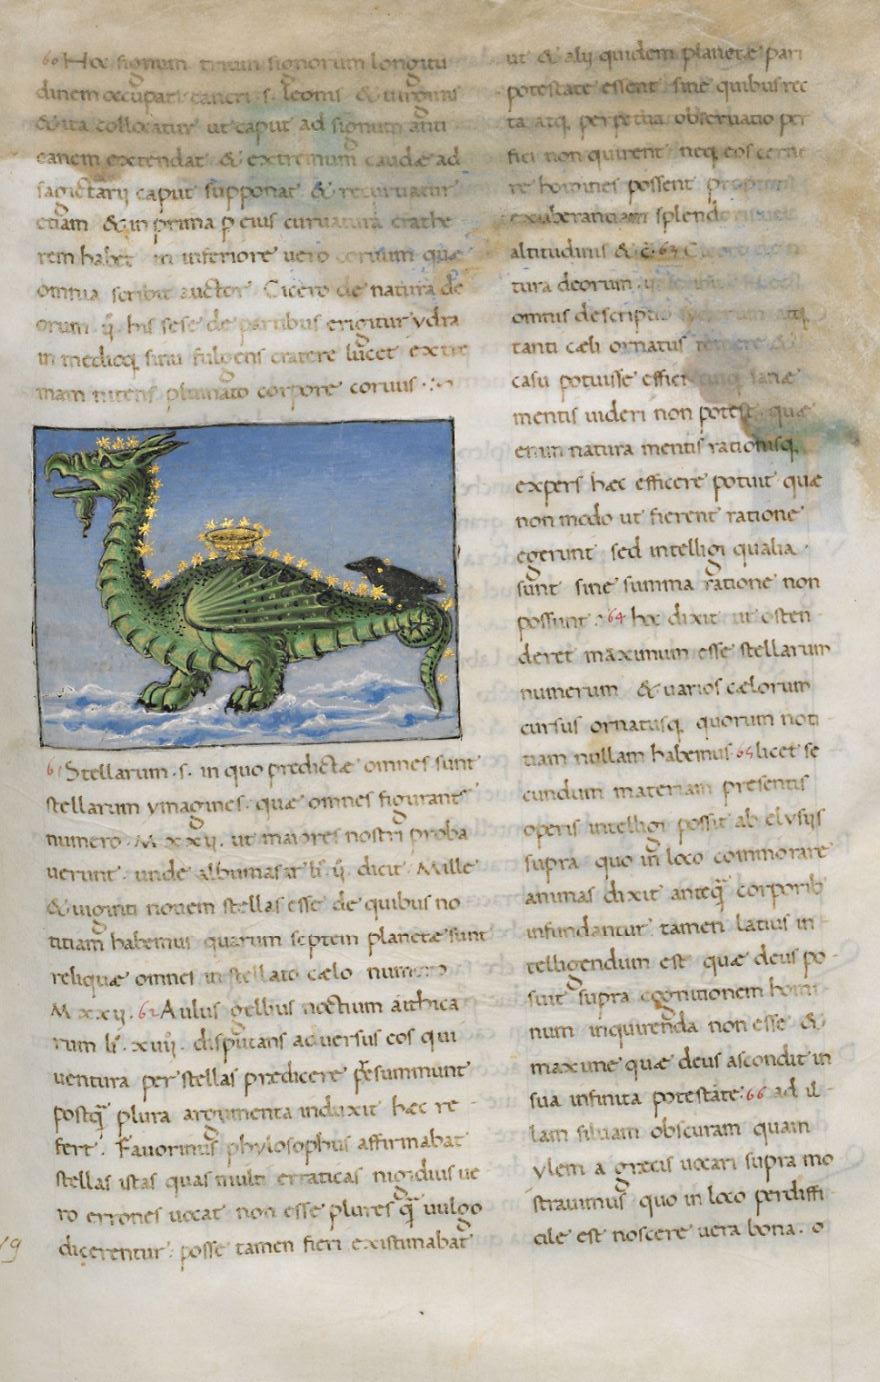 60 Hoc signum trium signorum longitu
dinem occupat cancri .s. leonis & uirginis
& ita collocatur ut caput ad signum anti
canem extendat & extremum caudæ ad
sagictarii caput supponat & recuruatur
etiam & in prima p eius curuatura crathe
rem habet in inferiore uero coruum quæ
omnia scribit auctor Cicero de natura de
orum .ij. his sese de partibus erigitur ydra
in medioq; sinu fulgens cratere lucet extre
mam nitens plumato corpore coruus
61 Stellarum .s. in quo predictæ omnes sunt
stellarum ymagines. quæ omnes figurant
numero. M xxij. ut maiores nostri proba
uerunt. unde albumasar li. ij. dicit. Mille
& uiginti nouem stellas esse de quibus no
titiam habemus quarum septem planetæ sunt
reliquæ omnes in stellato cælo numero
M xxij. 62 Aulus gelius noctium acthica
rum li. xiiij. disputans aduersus eos qui
uentura per stellas predicere presummunt
postq̃ plura argumenta induxit hæc re
fert. Fauorinus phylosophus affirmabat
stellas istas quas multi erraticas nigidius ue
ro errones uocat non esse plures q̃ uulgo
dicerentur: posse tamen fieri existimabat
ut & alij quidem planetæ pari
potestate essent sine quibus rec
ta atq. perpetua obseruatio per
fici non quirent neq. eos cerne
re homines possent propter
exuberantiam splendoris uel
altitudinis & c. 63 Cicero de na
tura deorum .ij.
omnis descriptio syderum atq.
tanti cæli ornatus temere &
casu potuisse effici cuiq. sanæ
mentis uideri non potest. quæ
enim natura mentis rationisq.
expers hæc efficere potuit quæ
non modo ut fierent ratione
egerunt sed intelligi qualia
sunt sine summa ratione non
possunt: 64 hoc dixit ut osten
deret maximum esse stellarum
numerum & uarios cælorum
cursus ornatusq. quorum noti
tiam nullam habemus 65 licet se
cundum materiam presentis
operis intelligi possit ab elysijs
supra quo in loco commorare
animas dixit anteq̃ corporib
infundantur tamen latius in
telligendum est quæ deus po
suit supra cognitionem homi
num inquirenda non esse &
maxime quæ deus ascondit in
sua infinita potestate: 66 ad il
lam siluam obscuram quam
ylem a græcis uocari supra mo
strauimus quo in loco perdiffi
cile est noscere uera bona. o